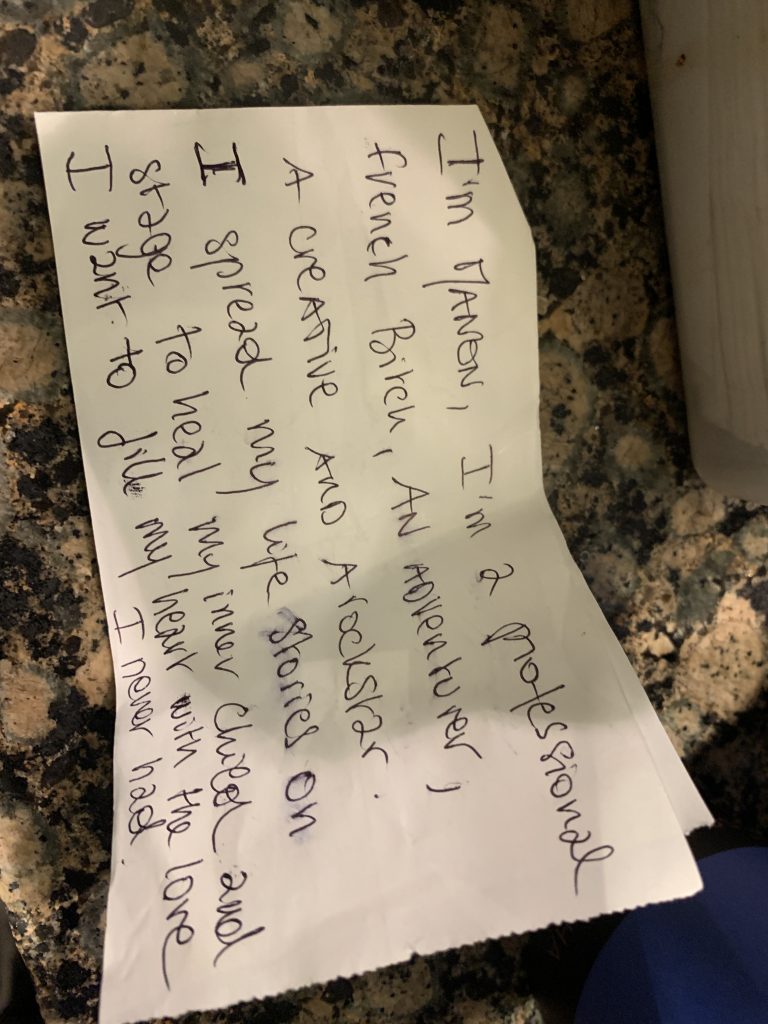 I'm MANON, I'm a professional
french Bitch, AN ADVENturer,
A CREATive AND A rockstar.
I spread my life stories on
stage to heal my inner child and
I want to fill my heart with the love
I never had.